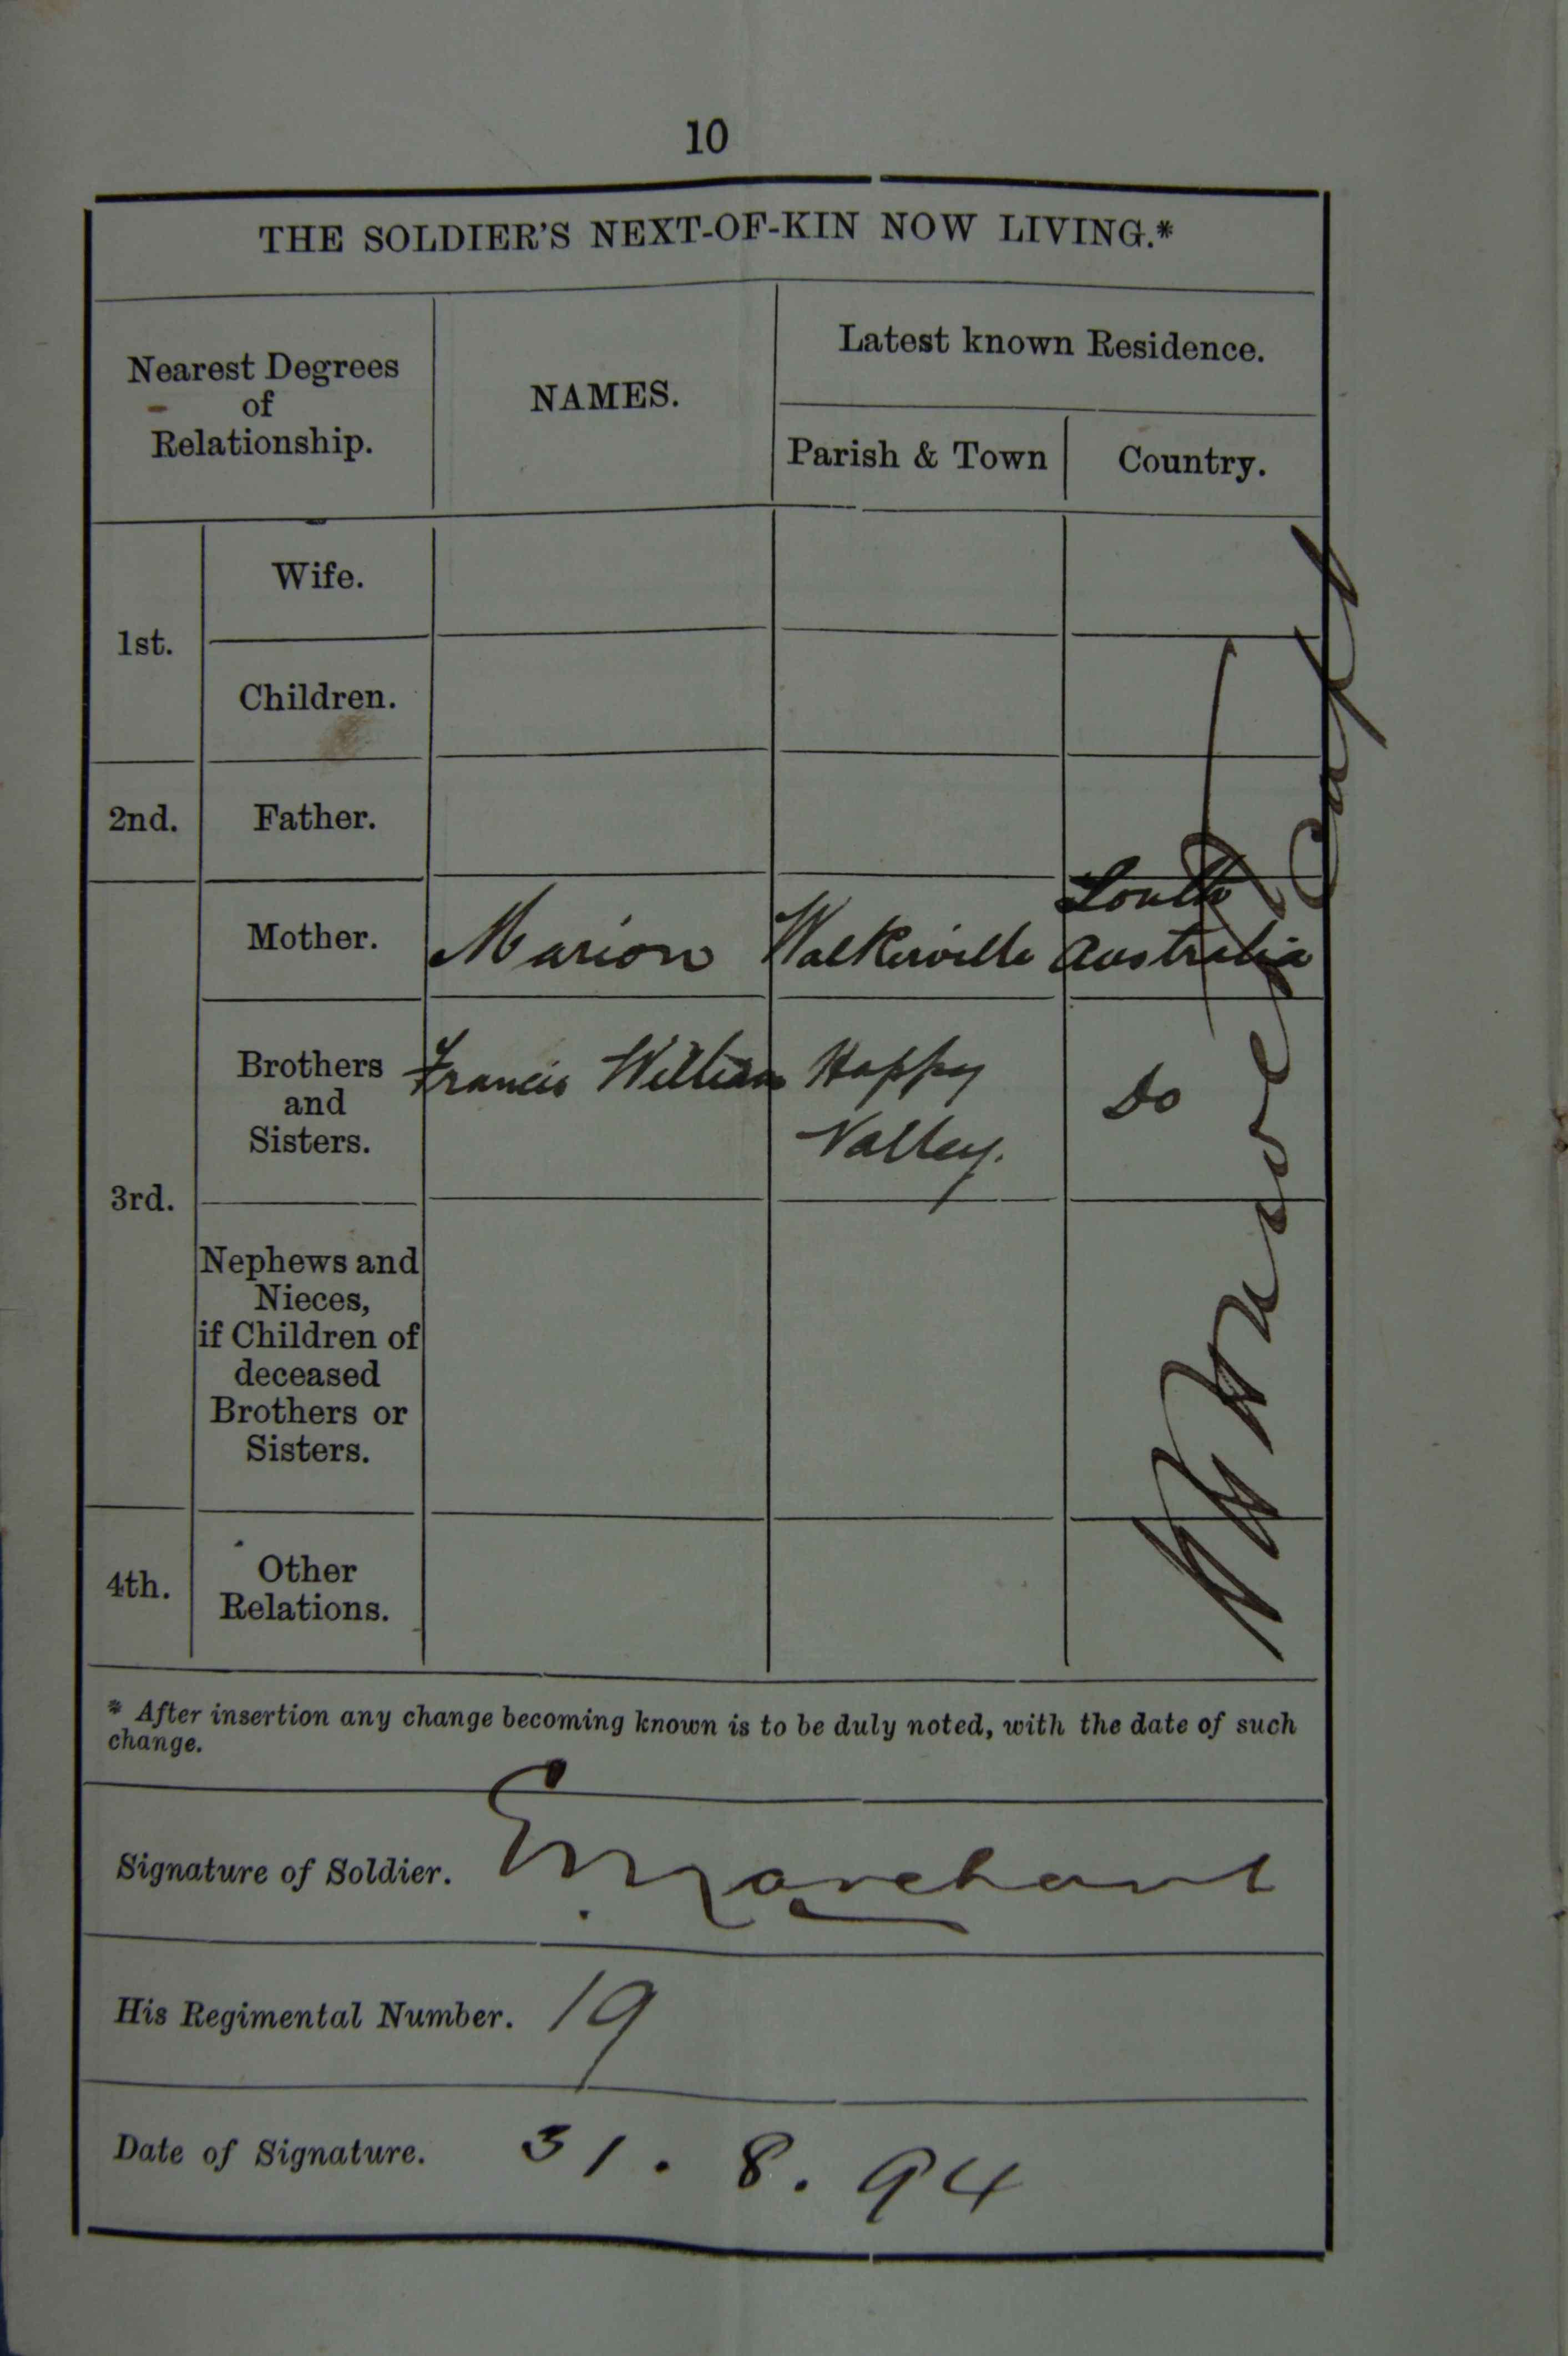 10
THE SOLDIER'S NEXT-OF-KIN NOW LIVING.*
Nearest Degrees
of
Relationship.
NAMES.
Latest known Residence.
Parish & Town
Country.
1st.
Wife.
Children.
2nd.
Father.
Mother.
Marion
Walkerville
South
Australia
3rd.
Brothers
and
Sisters.
Francis William
Happy
Valley.
Do
Nephews and
Nieces,
if Children of
deceased
Brothers or
Sisters.
4th.
Other
Relations.
Capt
* After insertion any change becoming known is to be duly noted, with the date of such
change.
Signature of Soldier.
E Marchant
His Regimental Number.
19
Date of Signature.
31. 8. 94